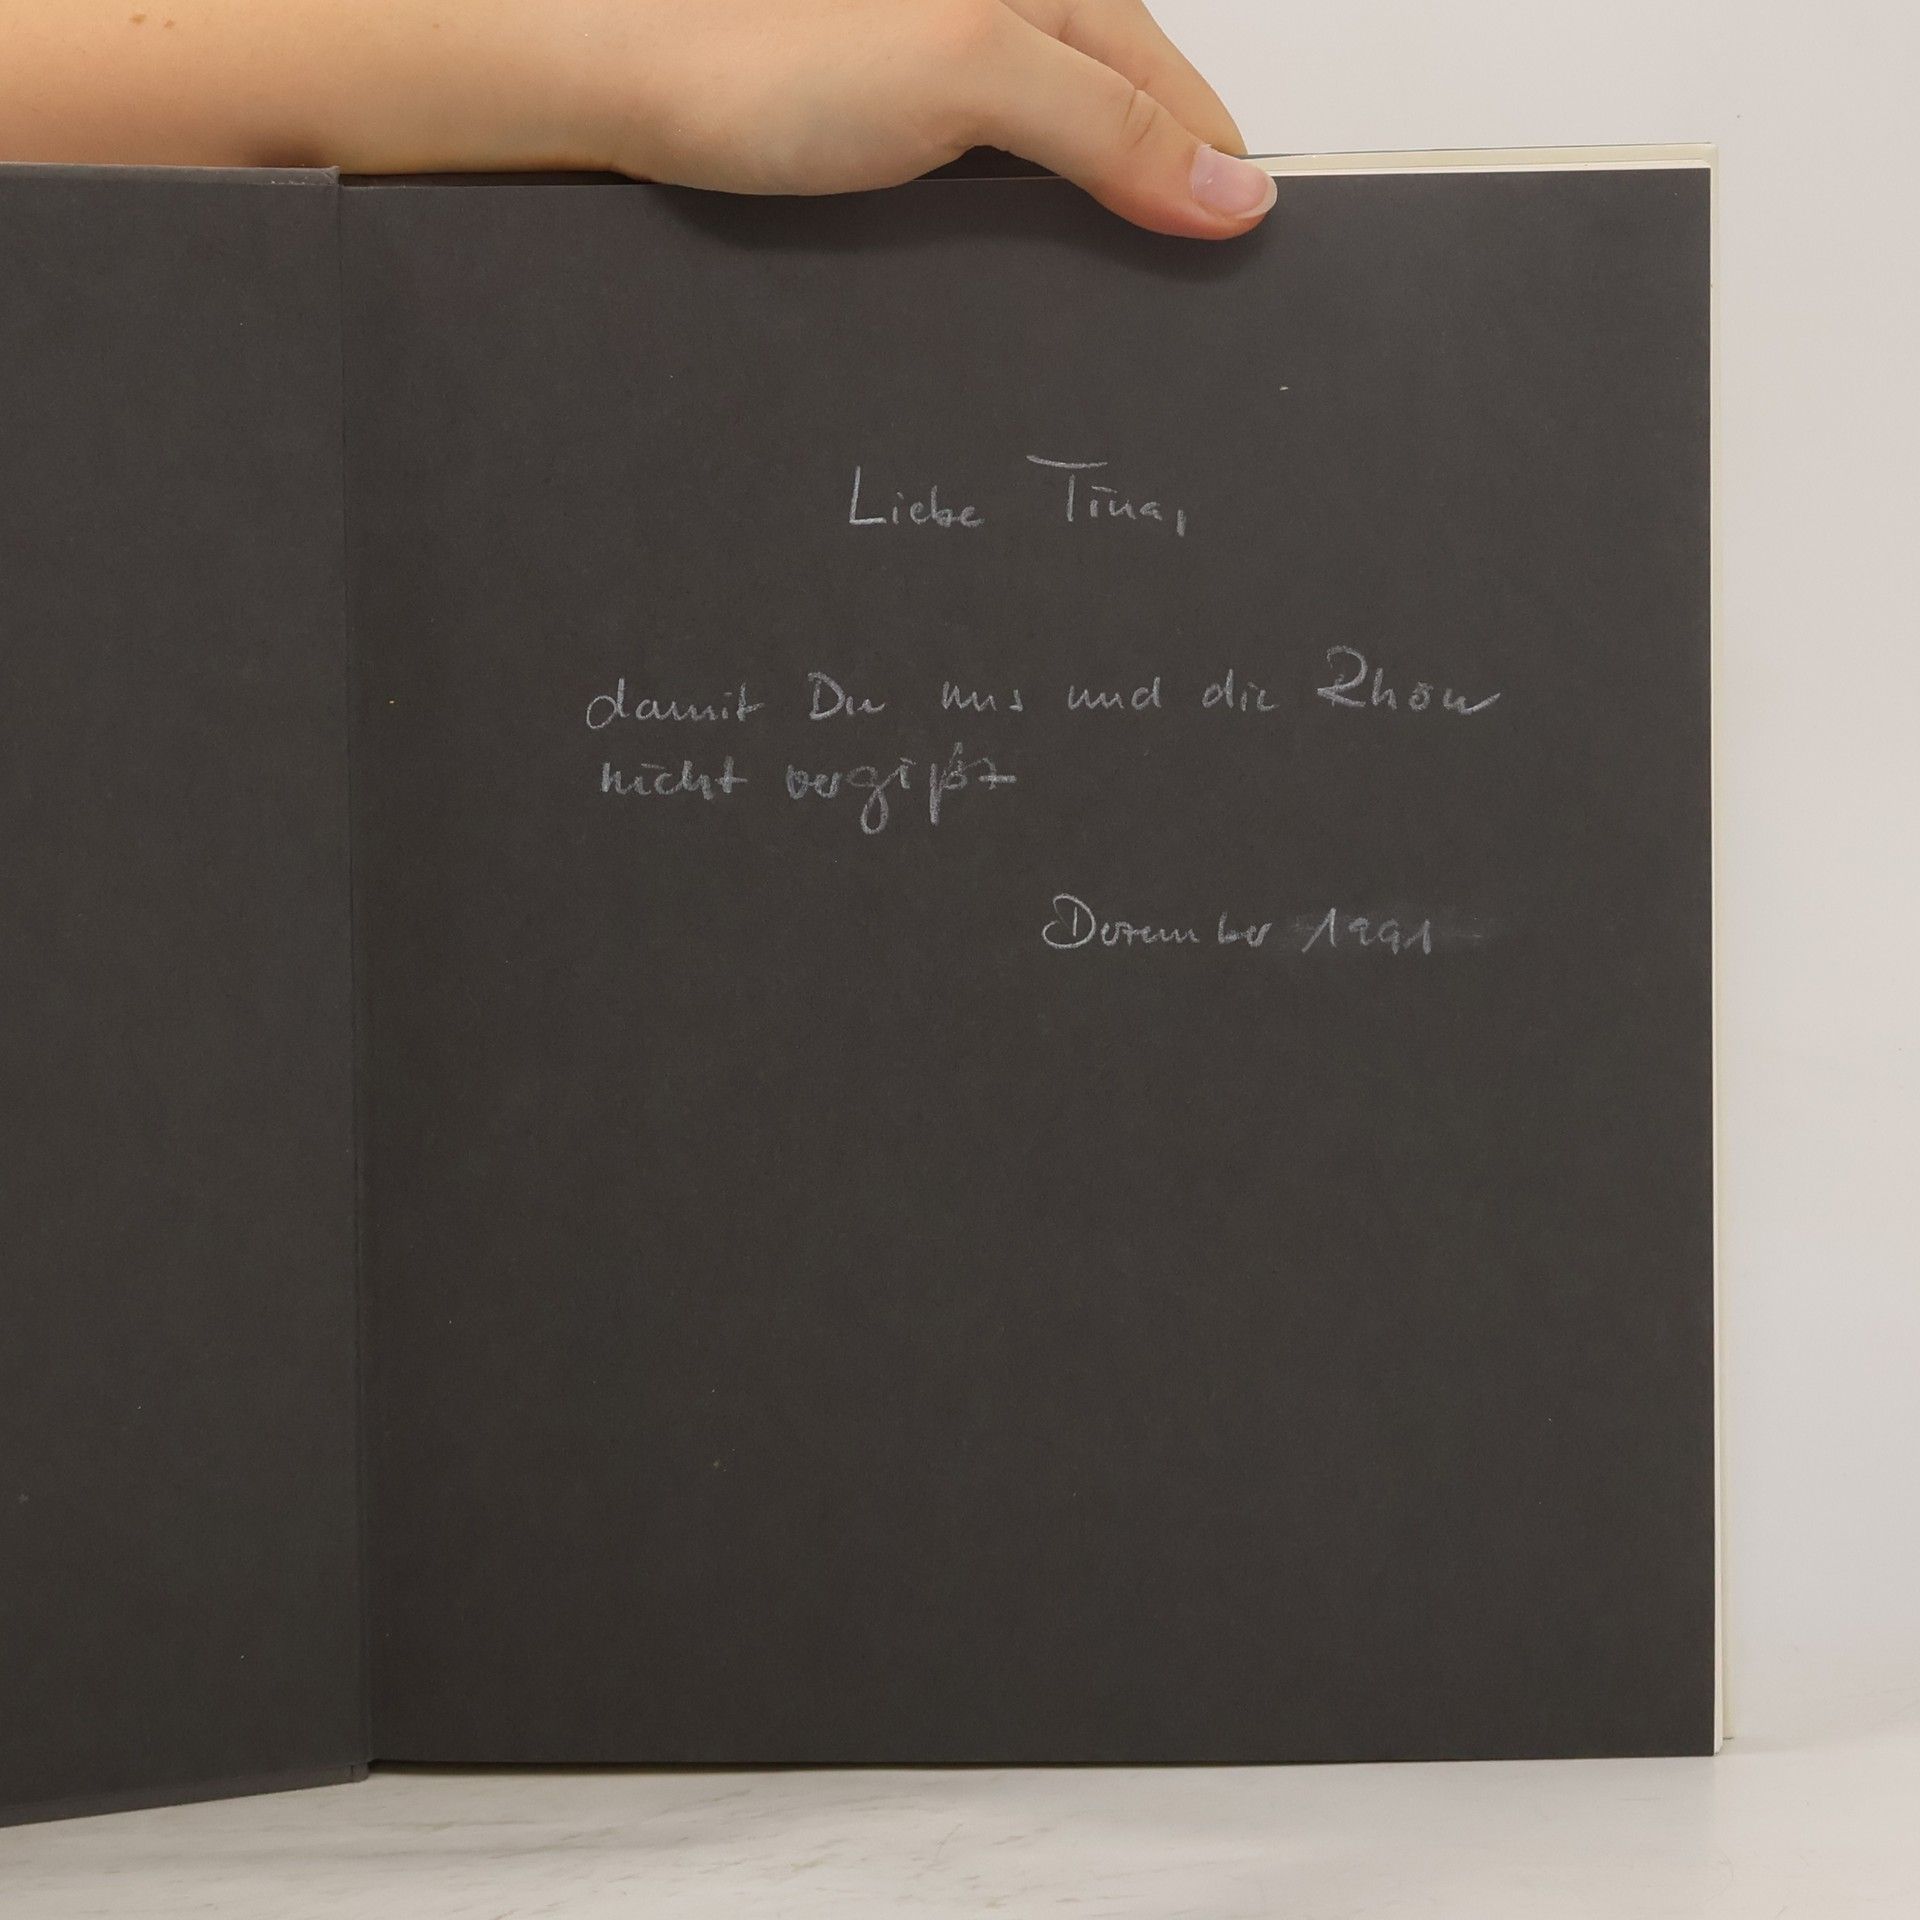 Liebe Tina,
damit Du uns und die Rhön
nicht vergißt
Dezember 1991